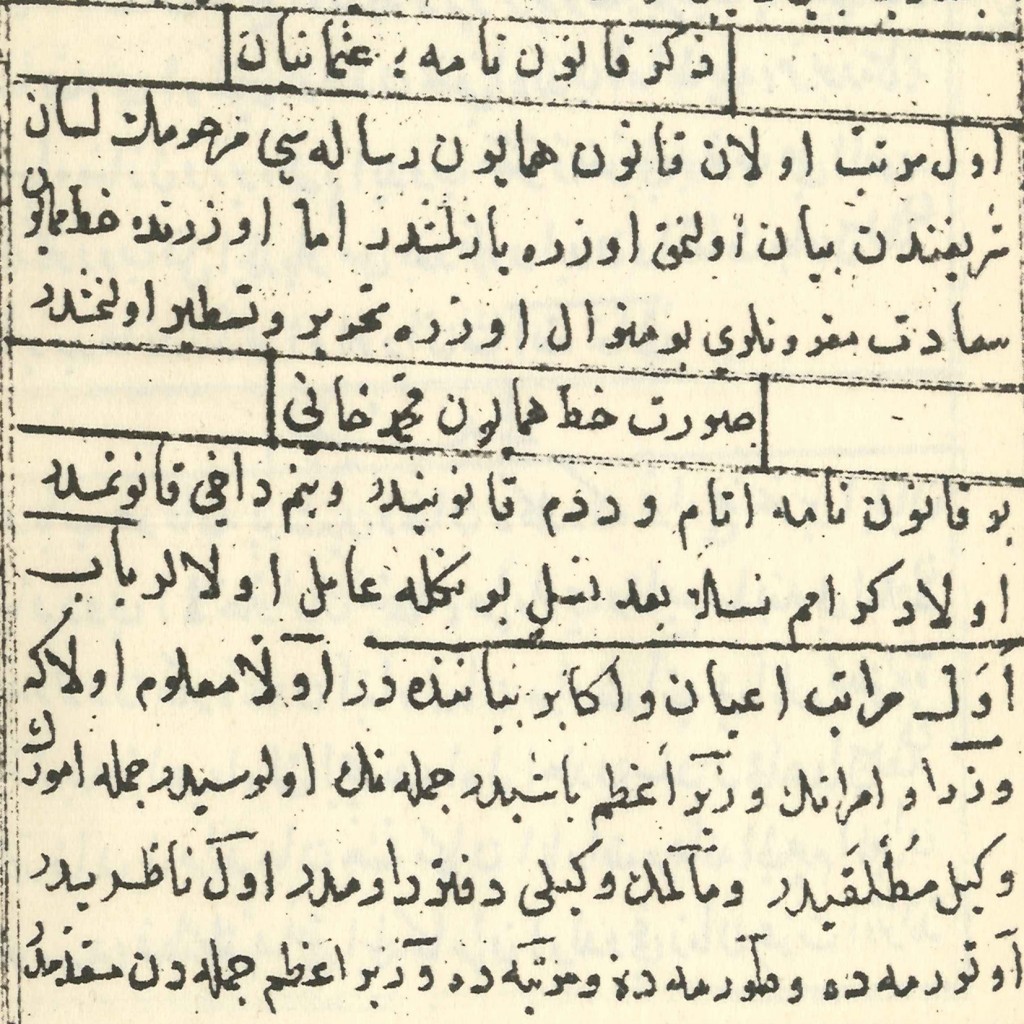 ذكر قانون نامهء عثمانیان
اول مرتب اولان قانون همایون رساله سی مرحومك لسان
شریفندن بیان اولنمق اوزره یازلمشدر اما اوزرنده خط همایون
سعادت مقرونلری بو منوال اوزره تحریر و تسطیر اولنمشدر
صورت خط همایون محمد خانی
بو قانون نامه اتام و ددم قانونیدر و بنم داخی قانونمدر
اولاد كرامم نسلا بعد نسل بونكله عامل اولالر باب
اول مراتب اعیان و اكابر بیاننده در اولا معلوم اولا كه
وزرا و امرانك وزیر اعظم باشیدر جمله نك اولوسیدر جمله امورك
وكیل مطلقیدر و مالمك وكیلی دفتردارمدر اول ناظریدر
اوتورمه ده و طورمه ده و مرتبه ده وزیر اعظم جمله دن مقدمدر